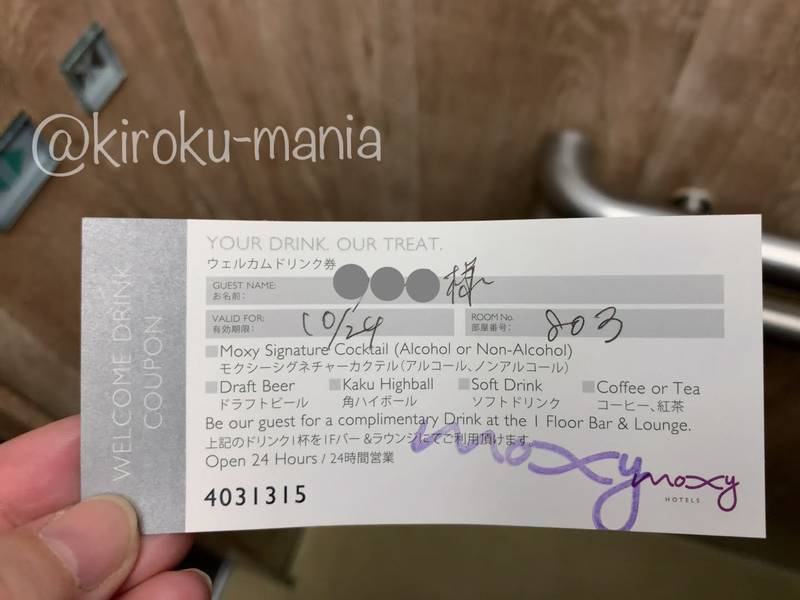 @kiroku-mania
WELCOME DRINK
COUPON
YOUR DRINK. OUR TREAT.
ウェルカムドリンク券
GUEST NAME:
お名前: 様
VALID FOR:
有効期限: 10/24
ROOM No.
部屋番号: 803
Moxy Signature Cocktail (Alcohol or Non-Alcohol)
モクシーシグネチャーカクテル(アルコール、ノンアルコール)
Draft Beer Kaku Highball Soft Drink Coffee or Tea
ドラフトビール 角ハイボール ソフトドリンク コーヒー、紅茶
Be our guest for a complimentary Drink at the 1 Floor Bar & Lounge.
上記のドリンク1杯を1Fバー&ラウンジにてご利用頂けます。
Open 24 Hours / 24時間営業
4031315
moxy
moxy
HOTELS